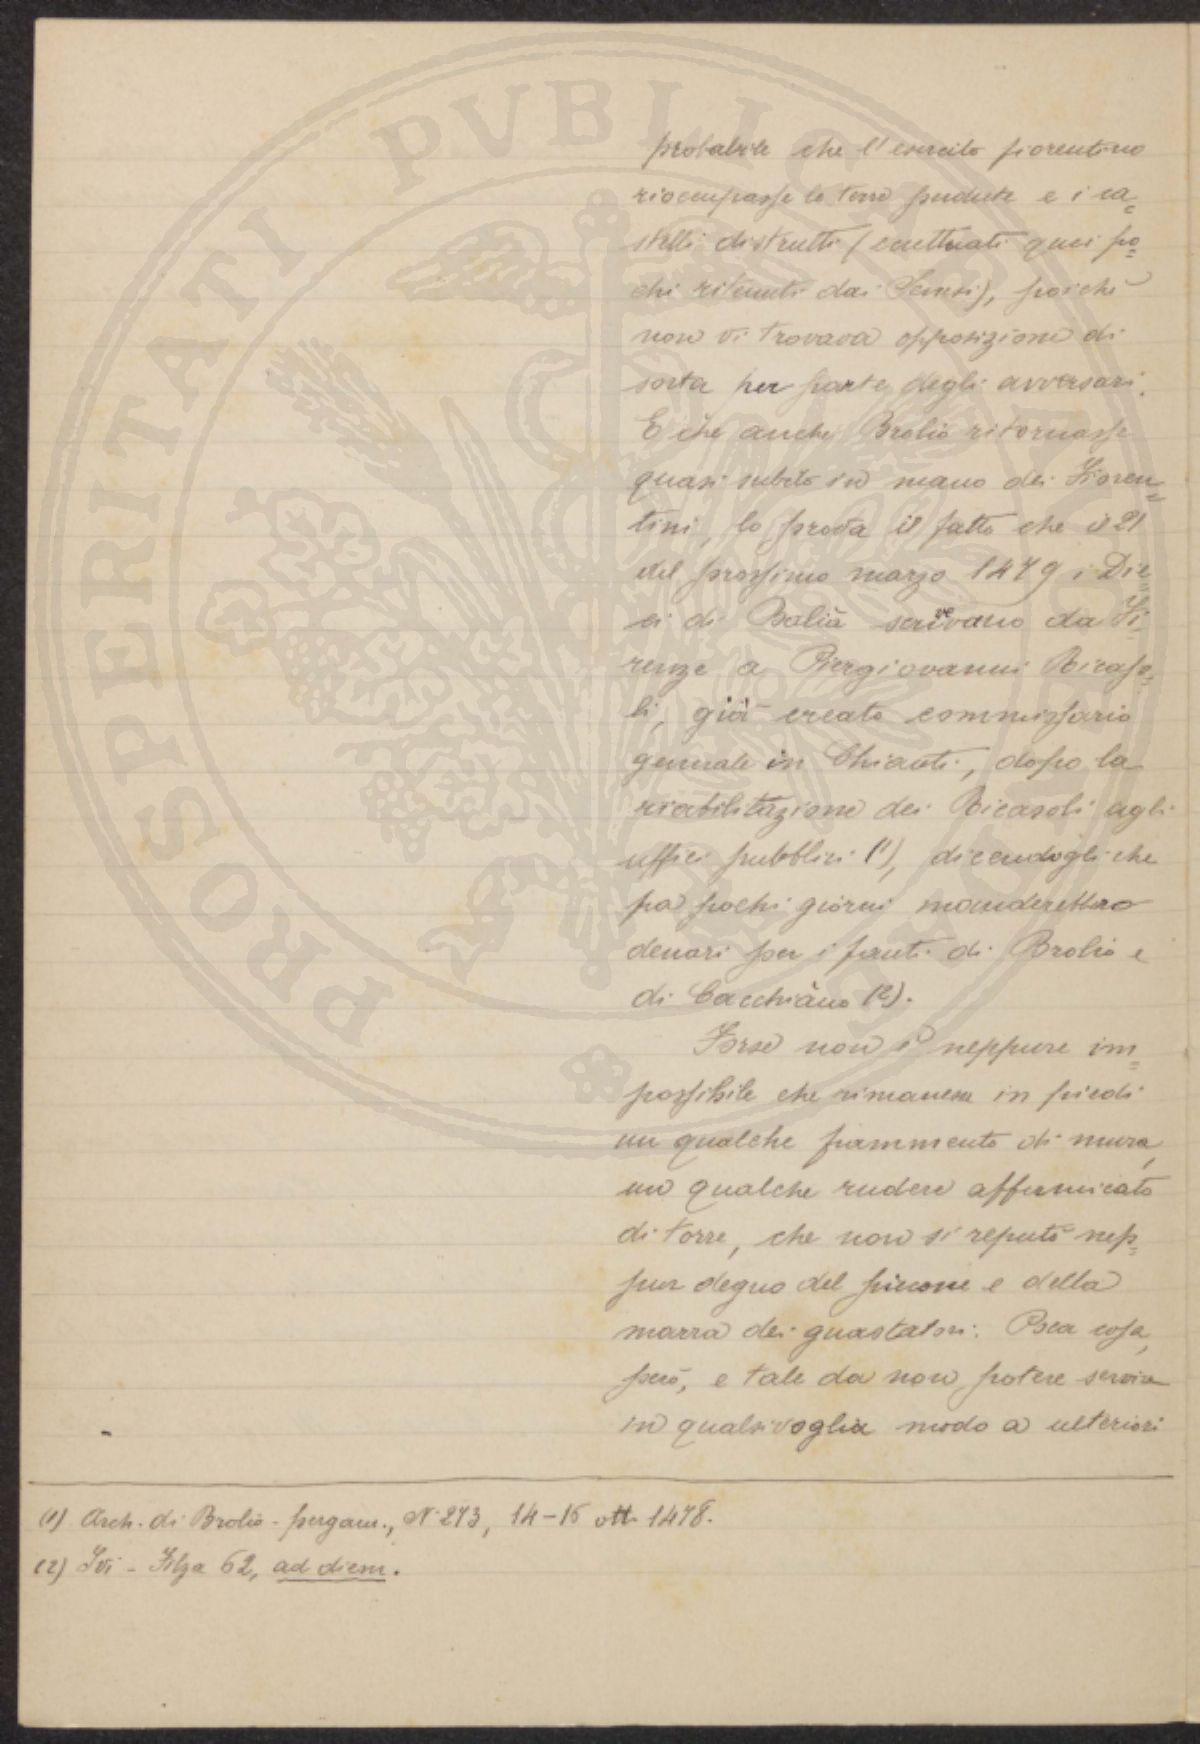 probabile che l'esercito fiorentino
rioccupasse le terre perdute e i ca=
stelli distrutti (eccettuati quei po=
chi ritenuti dai Senesi), poichè
non vi trovava opposizione di
sorta per parte degli avversari.
E che anche Brolio ritornasse
quasi subito in mano dei Fioren=
tini, lo prova il fatto che il 21
del prossimo marzo 1479 i Die=
ci di Balìa scrivevano da Fi=
renze a Piergiovanni Ricaso=
li, già creato commissario
generale in Chianti, dopo la
riabilitazione dei Ricasoli agli
uffici pubblici (1), dicendogli che
fra pochi giorni manderebbero
denari per i fanti di Brolio e
di Cacchiano (2).
Forse non è neppure im=
possibile che rimanesse in piedi
un qualche frammento di mura,
un qualche rudere affumicato
di torre, che non si reputò nep=
pur degno del piccone e della
marra dei guastatori. Poca cosa,
però, e tale da non potere servire
in qualsivoglia modo a ulteriori
(1) Arch. di Brolio - pergam., N. 273, 14-16 ott. 1478.
(2) Ivi - Filza 62, ad diem.
PROSPERITATI PVBLICAE